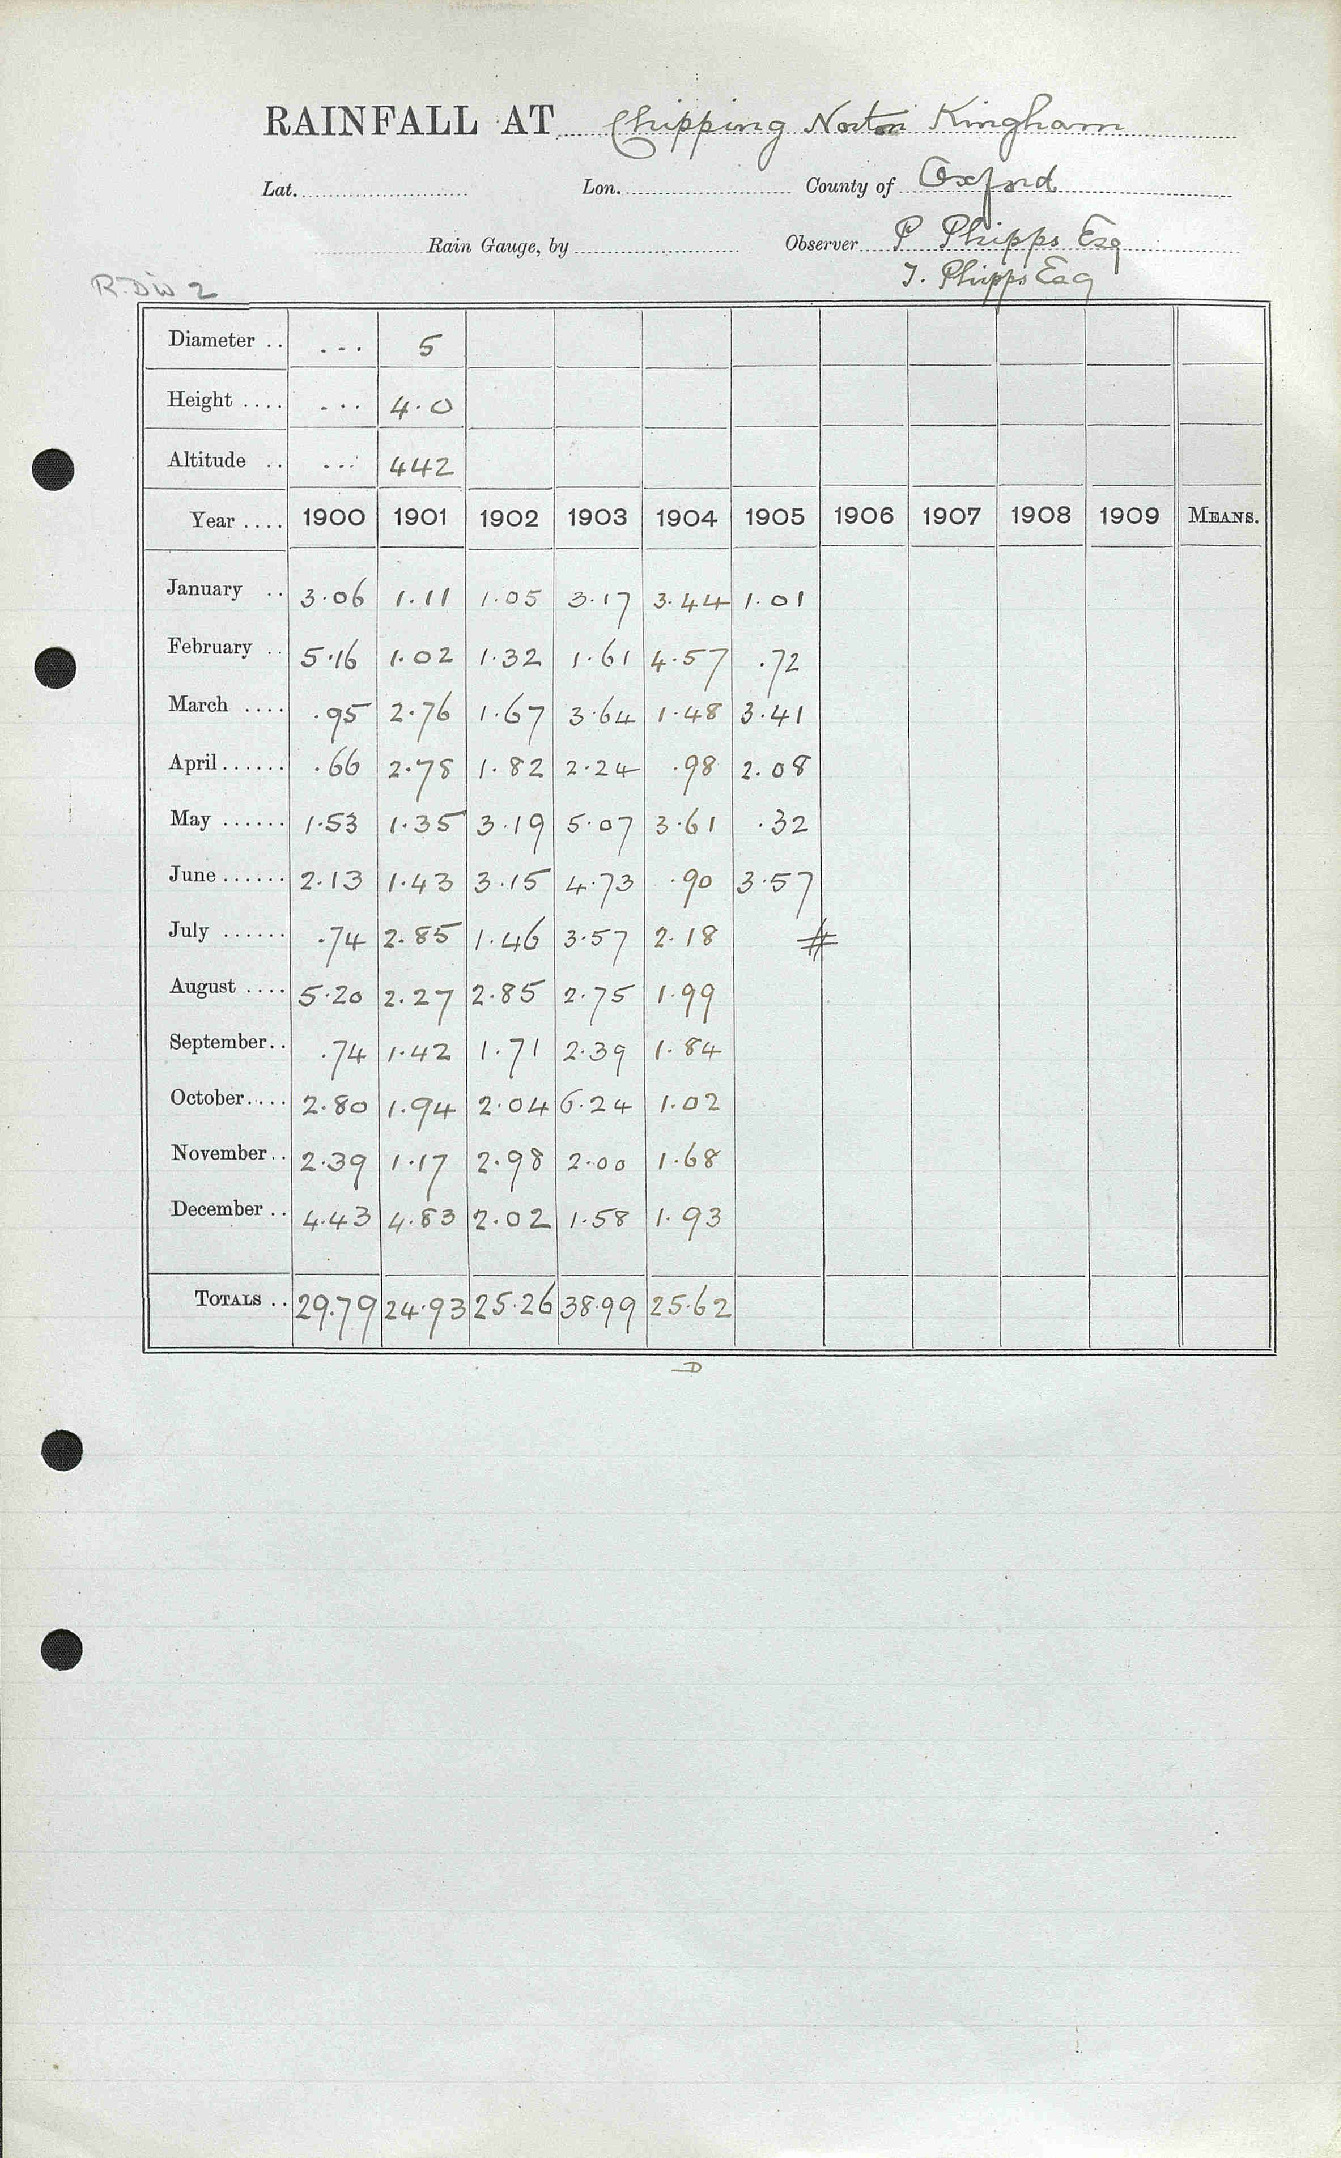 RAINFALL AT Chipping Norton Kingham
Lat. Lon. County of Oxford
Rain Gauge, by Observer P Phipps Esq
T. Phipps Esq
R. Div 2
Diameter .. ... 5
Height .... ... 4.0
Altitude .. ... 442
Year .... 1900 1901 1902 1903 1904 1905 1906 1907 1908 1909 MEANS.
January .. 3.06 1.11 1.05 3.17 3.44 1.01
February .. 5.16 1.02 1.32 1.61 4.57 .72
March .... .95 2.76 1.67 3.64 1.48 3.41
April ...... .66 2.78 1.82 2.24 .98 2.08
May ...... 1.53 1.35 3.19 5.07 3.61 .32
June ...... 2.13 1.43 3.15 4.73 .90 3.57
July ...... .74 2.85 1.46 3.57 2.18 #
August .... 5.20 2.27 2.85 2.75 1.99
September .. .74 1.42 1.71 2.39 1.84
October .... 2.80 1.94 2.04 6.24 1.02
November .. 2.39 1.17 2.98 2.00 1.68
December .. 4.43 4.83 2.02 1.58 1.93
TOTALS .. 29.79 24.93 25.26 38.99 25.62
D